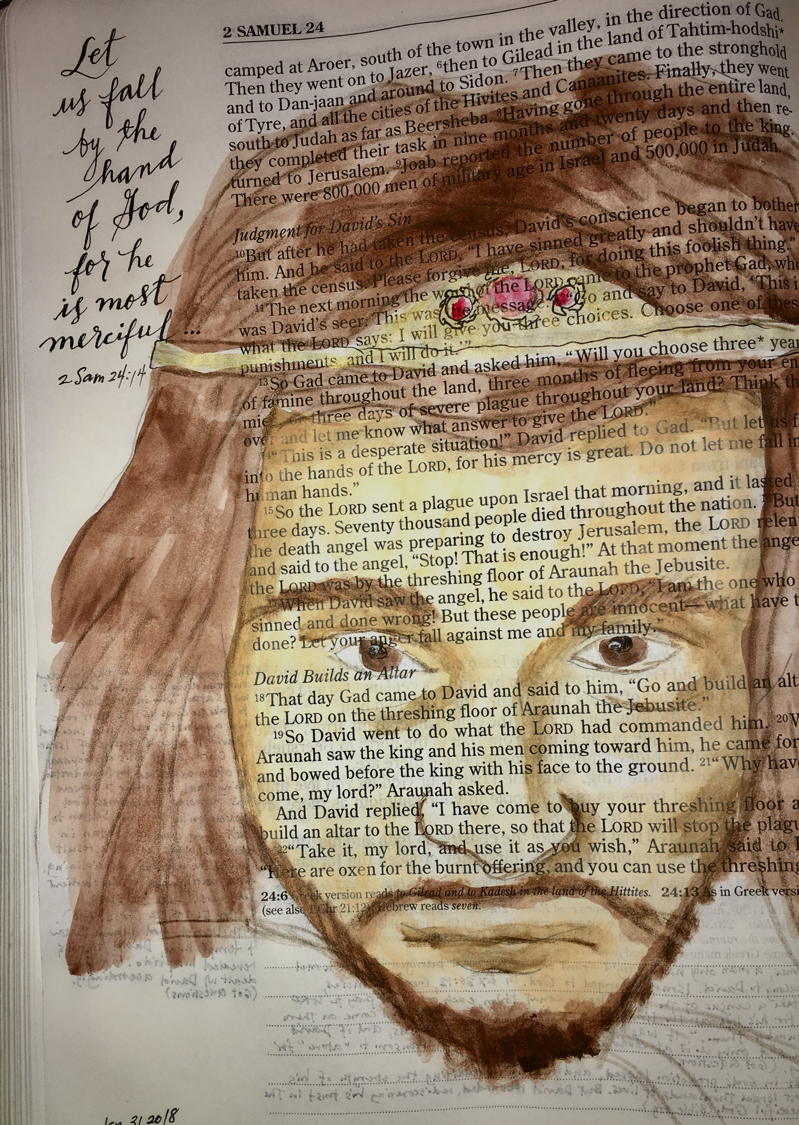 2 SAMUEL 24
Let
us fall
by the
hand
of God,
for he
is most
merciful...
2 Sam 24:14
camped at Aroer, south of the town in the valley, in the direction of Gad.
Then they went on to Jazer, 6then to Gilead in the land of Tahtim-hodshi*
and to Dan-jaan and around to Sidon. 7Then they came to the stronghold
of Tyre, and all the cities of the Hivites and Canaanites. Finally, they went
south to Judah as far as Beersheba. 8Having gone through the entire land,
they completed their task in nine months and twenty days and then re-
turned to Jerusalem. 9Joab reported the number of people to the king.
There were 800,000 men of military age in Israel and 500,000 in Judah.
Judgment for David's Sin
10But after he had taken the census, David's conscience began to bother
him. And he said to the LORD, "I have sinned greatly and shouldn't have
taken the census. Please forgive me, LORD, for doing this foolish thing."
11The next morning the word of the LORD came to the prophet Gad, who
was David's seer. This was the message: "Go and say to David, 'This i
what the LORD says: I will give you three choices. Choose one of these
punishments, and I will do it.'"
13So Gad came to David and asked him, "Will you choose three* yea
of famine throughout the land, three months of fleeing from your en
or three days of severe plague throughout your land? Think th
over and let me know what answer to give the LORD."
14"This is a desperate situation!" David replied to Gad. "But let us f
into the hands of the LORD, for his mercy is great. Do not let me fall in
human hands."
15So the LORD sent a plague upon Israel that morning, and it lasted
three days. Seventy thousand people died throughout the nation. But
the death angel was preparing to destroy Jerusalem, the LORD relen
and said to the angel, "Stop! That is enough!" At that moment the ange
the LORD was by the threshing floor of Araunah the Jebusite.
When David saw the angel, he said to the LORD, "I am the one who
sinned and done wrong! But these people are innocent—what have t
done? Let your anger fall against me and my family."
David Builds an Altar
18That day Gad came to David and said to him, "Go and build an alt
the LORD on the threshing floor of Araunah the Jebusite."
19So David went to do what the LORD had commanded him. 20W
Araunah saw the king and his men coming toward him, he came for
and bowed before the king with his face to the ground. 21"Why hav
come, my lord?" Araunah asked.
And David replied, "I have come to buy your threshing floor a
build an altar to the LORD there, so that the LORD will stop the plagu
22"Take it, my lord, and use it as you wish," Araunah said to
"Here are oxen for the burnt offering, and you can use the threshing
24:6 Greek version reads to Gilead and to Kadesh in the land of the Hittites. 24:13 As in Greek versi
(see also 1 Chr 21:12); Hebrew reads seven.
Jan 31 2018